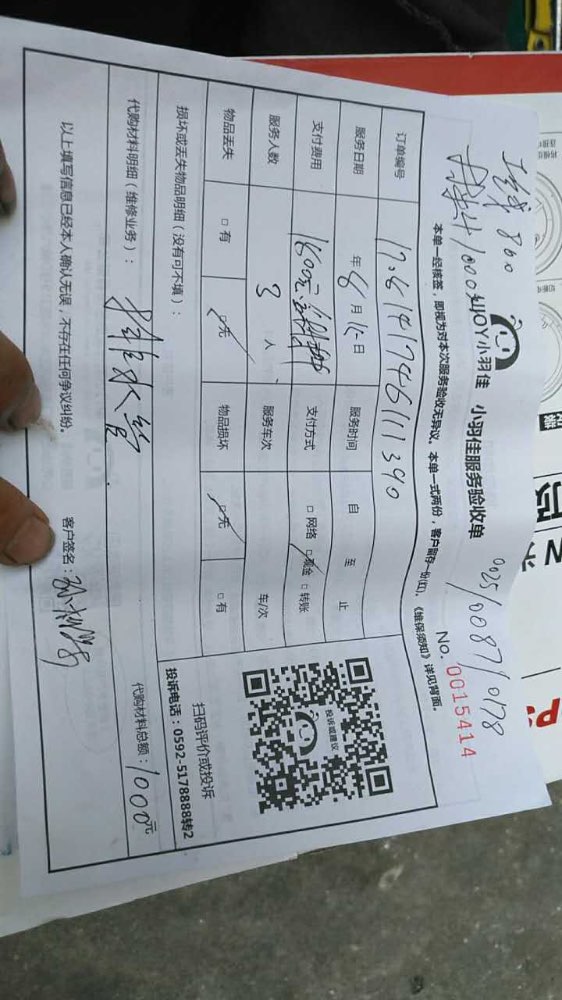 工钱 800
材料 1000
XIAOYJ小羽佳 小羽佳服务验收单
0025/0087/0178
本单一经核签，即视为对本次服务验收无异议。本单一式两份，客户留存一份(红)。《维保须知》详见背面。
No. 0015414
订单编号 170614174611390
服务日期 年 6 月 15 日 服务时间 自 至 止
支付费用 1800元 支付方式 □网络 □现金 □转账
服务人数 3 人 服务车次 车/次
物品丢失 □有 □无 物品损坏 □无 □有
损坏或丢失物品明细（没有可不填）：
扫码评价或投诉
投诉电话：0592-5178888转2
投诉或建议
代购材料明细（维修业务）： 排水管 代购材料总额：1000元
以上填写信息已经本人确认无误，不存在任何争议纠纷。 客户签名：